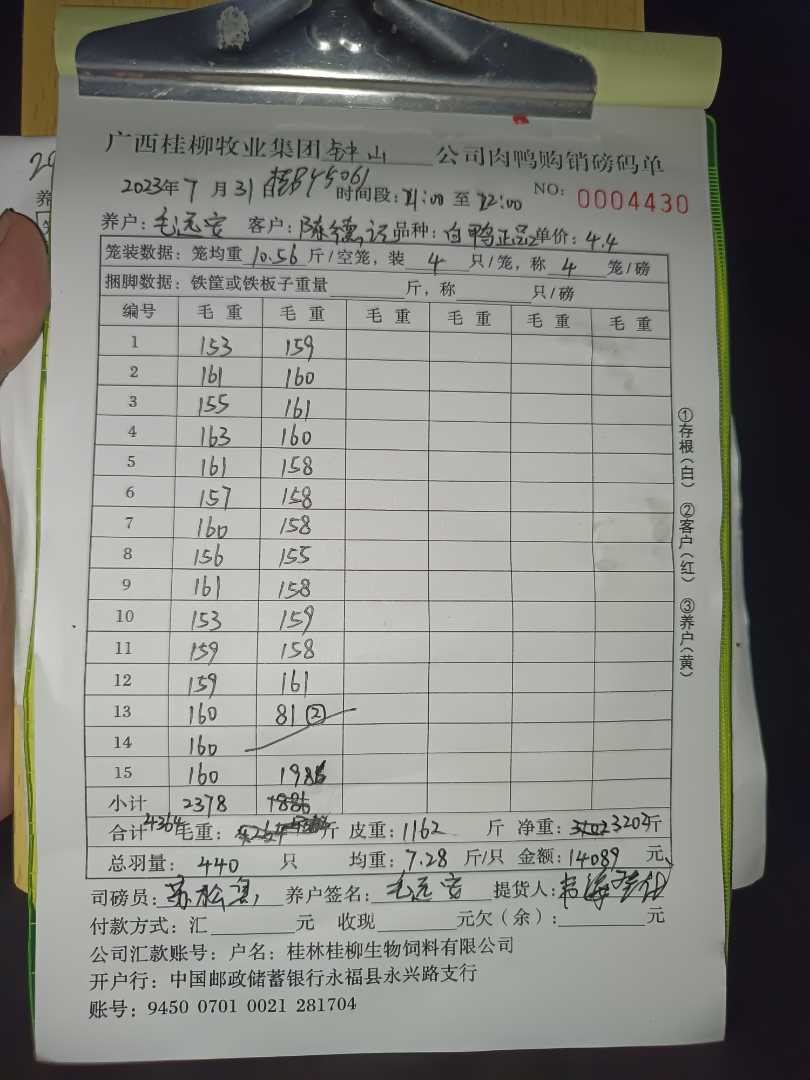 广西桂柳牧业集团钟山公司肉鸭购销磅码单
2023年7月31日 桂BY5061 时间段:21:00至22:00 NO: 0004430
养户:毛远安 客户:陈德 品种:白鸭正品 单价:4.4
笼装数据:笼均重10.56斤/空笼,装4只/笼,称4笼/磅
捆脚数据:铁筐或铁板子重量 斤,称 只/磅
编号 毛重 毛重 毛重 毛重 毛重 毛重
1 153 159
2 161 160
3 155 161
4 163 160
5 161 158
6 157 158
7 160 158
8 156 155
9 161 158
10 153 159
11 159 158
12 159 161
13 160 81②
14 160
15 160 1986
小计 2378 1886
合计 4364 毛重: 斤 皮重:1162斤 净重:3202斤
总羽量:440只 均重:7.28斤/只 金额:14089元
司磅员:苏松 养户签名:毛远安 提货人:
付款方式:汇 元 收现 元欠(余): 元
公司汇款账号:户名:桂林桂柳生物饲料有限公司
开户行:中国邮政储蓄银行永福县永兴路支行
账号:9450 0701 0021 281704
①存根(白) ②客户(红) ③养户(黄)